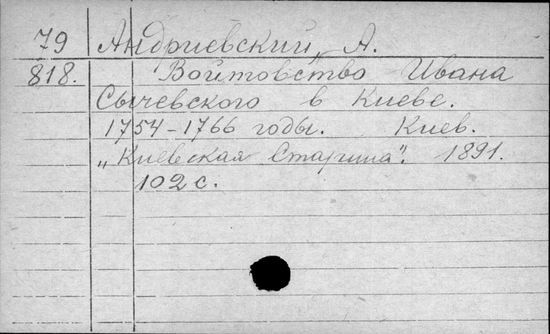 79 Андриевский, А.
818. Войтовство Ивана
Сычевского в Киеве.
1754-1766 годы. Киев.
„Киевская Старина". 1891.
102 с.